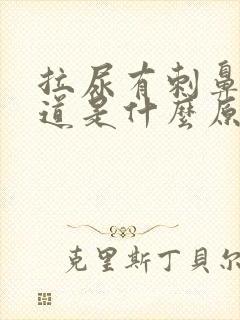 拉尿有刺鼻
道是什麼原
克里斯丁貝尔